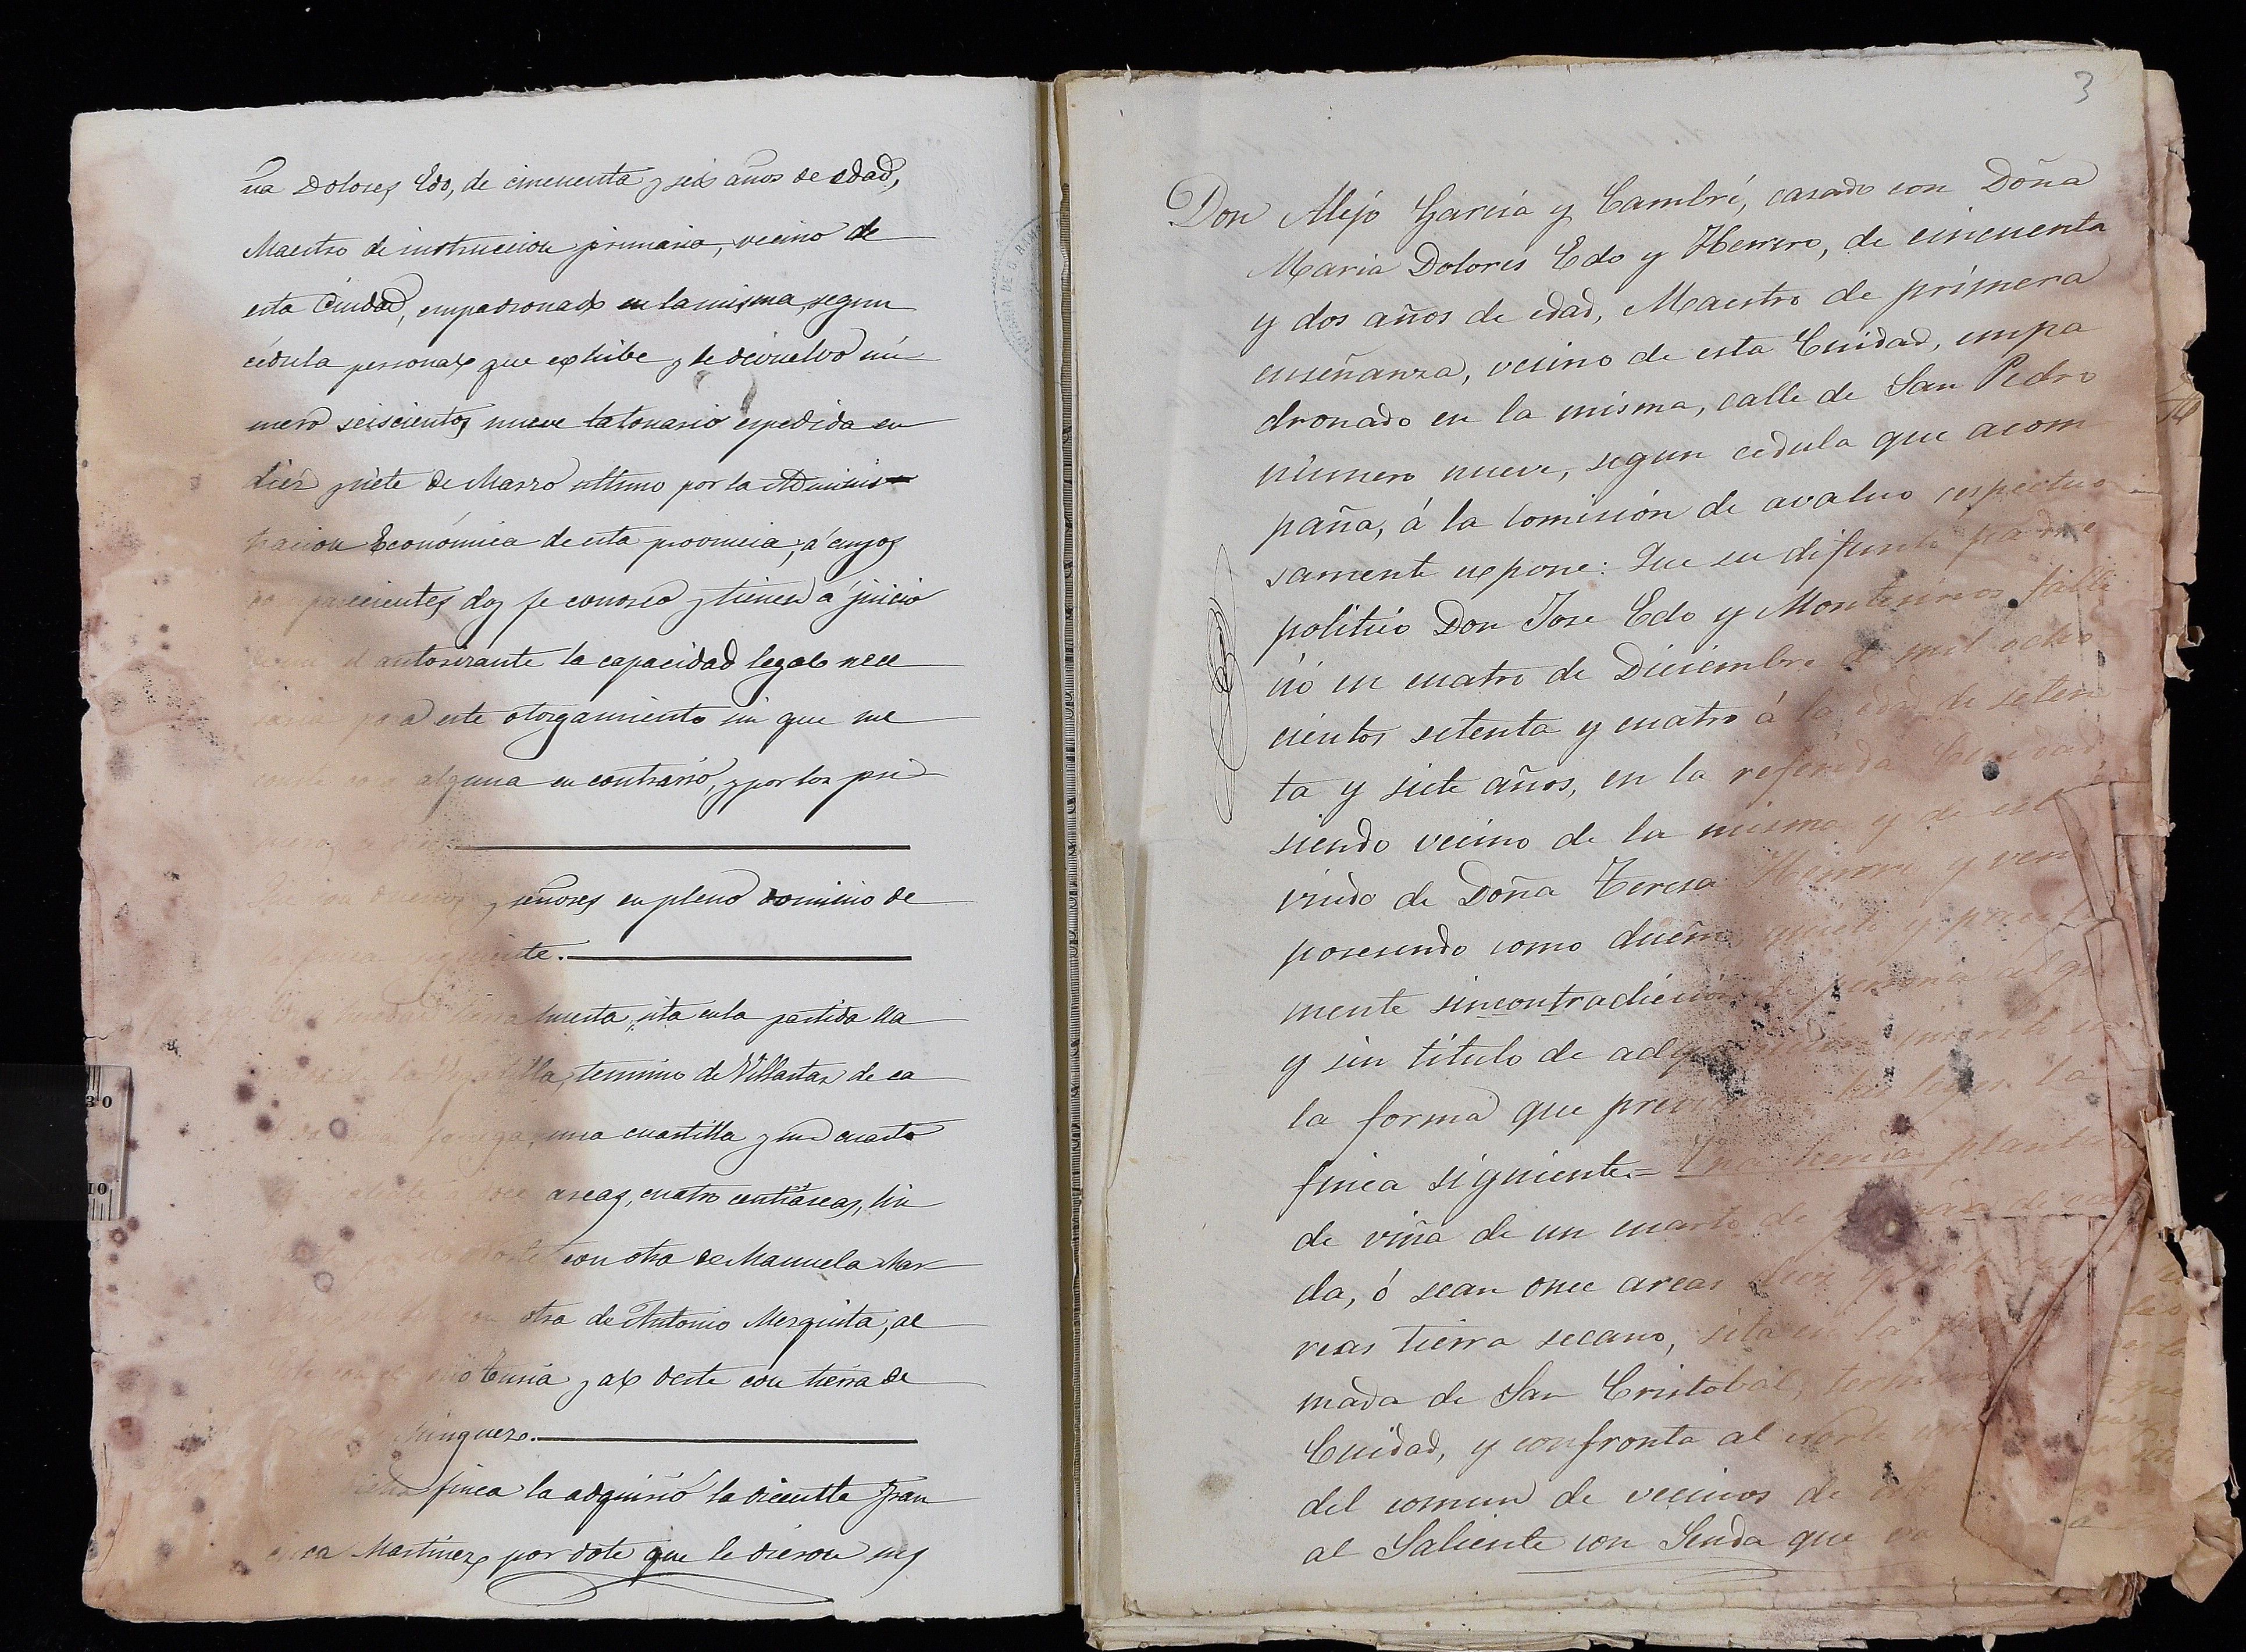 ña Dolores Edo, de cincuenta y seis años de edad,
Maestro de instruccion primaria, vecino de
esta Ciudad, empadronado en la misma, segun
cédula personal que exhibe y le devuelvo nú-
mero seiscientos nueve talonario espedida en
diez y siete de Marzo ultimo por la Adminis-
tracion Económica de esta provincia, á cuyos
comparecientes doy fe conozco y tienen á juicio
del autorizante la capacidad legal nece
saria para este otorgamiento sin que me
conste cosa alguna en contrario, y por los pri-
meros se
Que son dueños y señores en pleno dominio de
la finca siguiente.
tierra huerta, sita en la partida lla
la Vegatilla, termino de Villastar de ca
fanega, una cuartilla y un cuarto
areas, cuatro centiáreas, lin
con otra de Manuela Mar-
otra de Antonio Mezquita, al
rio Turia y al Oeste con tierra de
Minguez.
finca la adquirió la dicente Fran
cisca Martinez por dote que le dieron sus
3
Don Alejo García y Cambrí, casado con Doña
Maria Dolores Edo y Herrero, de cincuenta
y dos años de edad, Maestro de primera
enseñanza, vecino de esta Ciudad, empa
dronado en la misma, calle de San Pedro
número nueve, segun cedula que acom
paña, á la comisión de avaluo respectuo
samente expone: Que su difunto padre
politico Don Jose Edo y Montesinos falle
ció en cuatro de Diciembre de mil ocho
cientos setenta y cuatro á la edad de seten
ta y siete años, en la referida Ciudad
siendo vecino de la misma y de
viudo de Doña Teresa Herrero y
poseyendo como dueño, quieta y pacifica
mente sin contradicción de persona alguna
y sin titulo de adquisición inscrito en
la forma que previenen las leyes la
finca siguiente = Una heredad plantada
de viña de un cuarto de de ca
da, ó sean once areas diez y siete
reas tierra secano, sita en la
mada de San Cristobal, termino
Ciudad, y confronta al Norte con
del comun de vecinos de
al Saliente con Senda que va